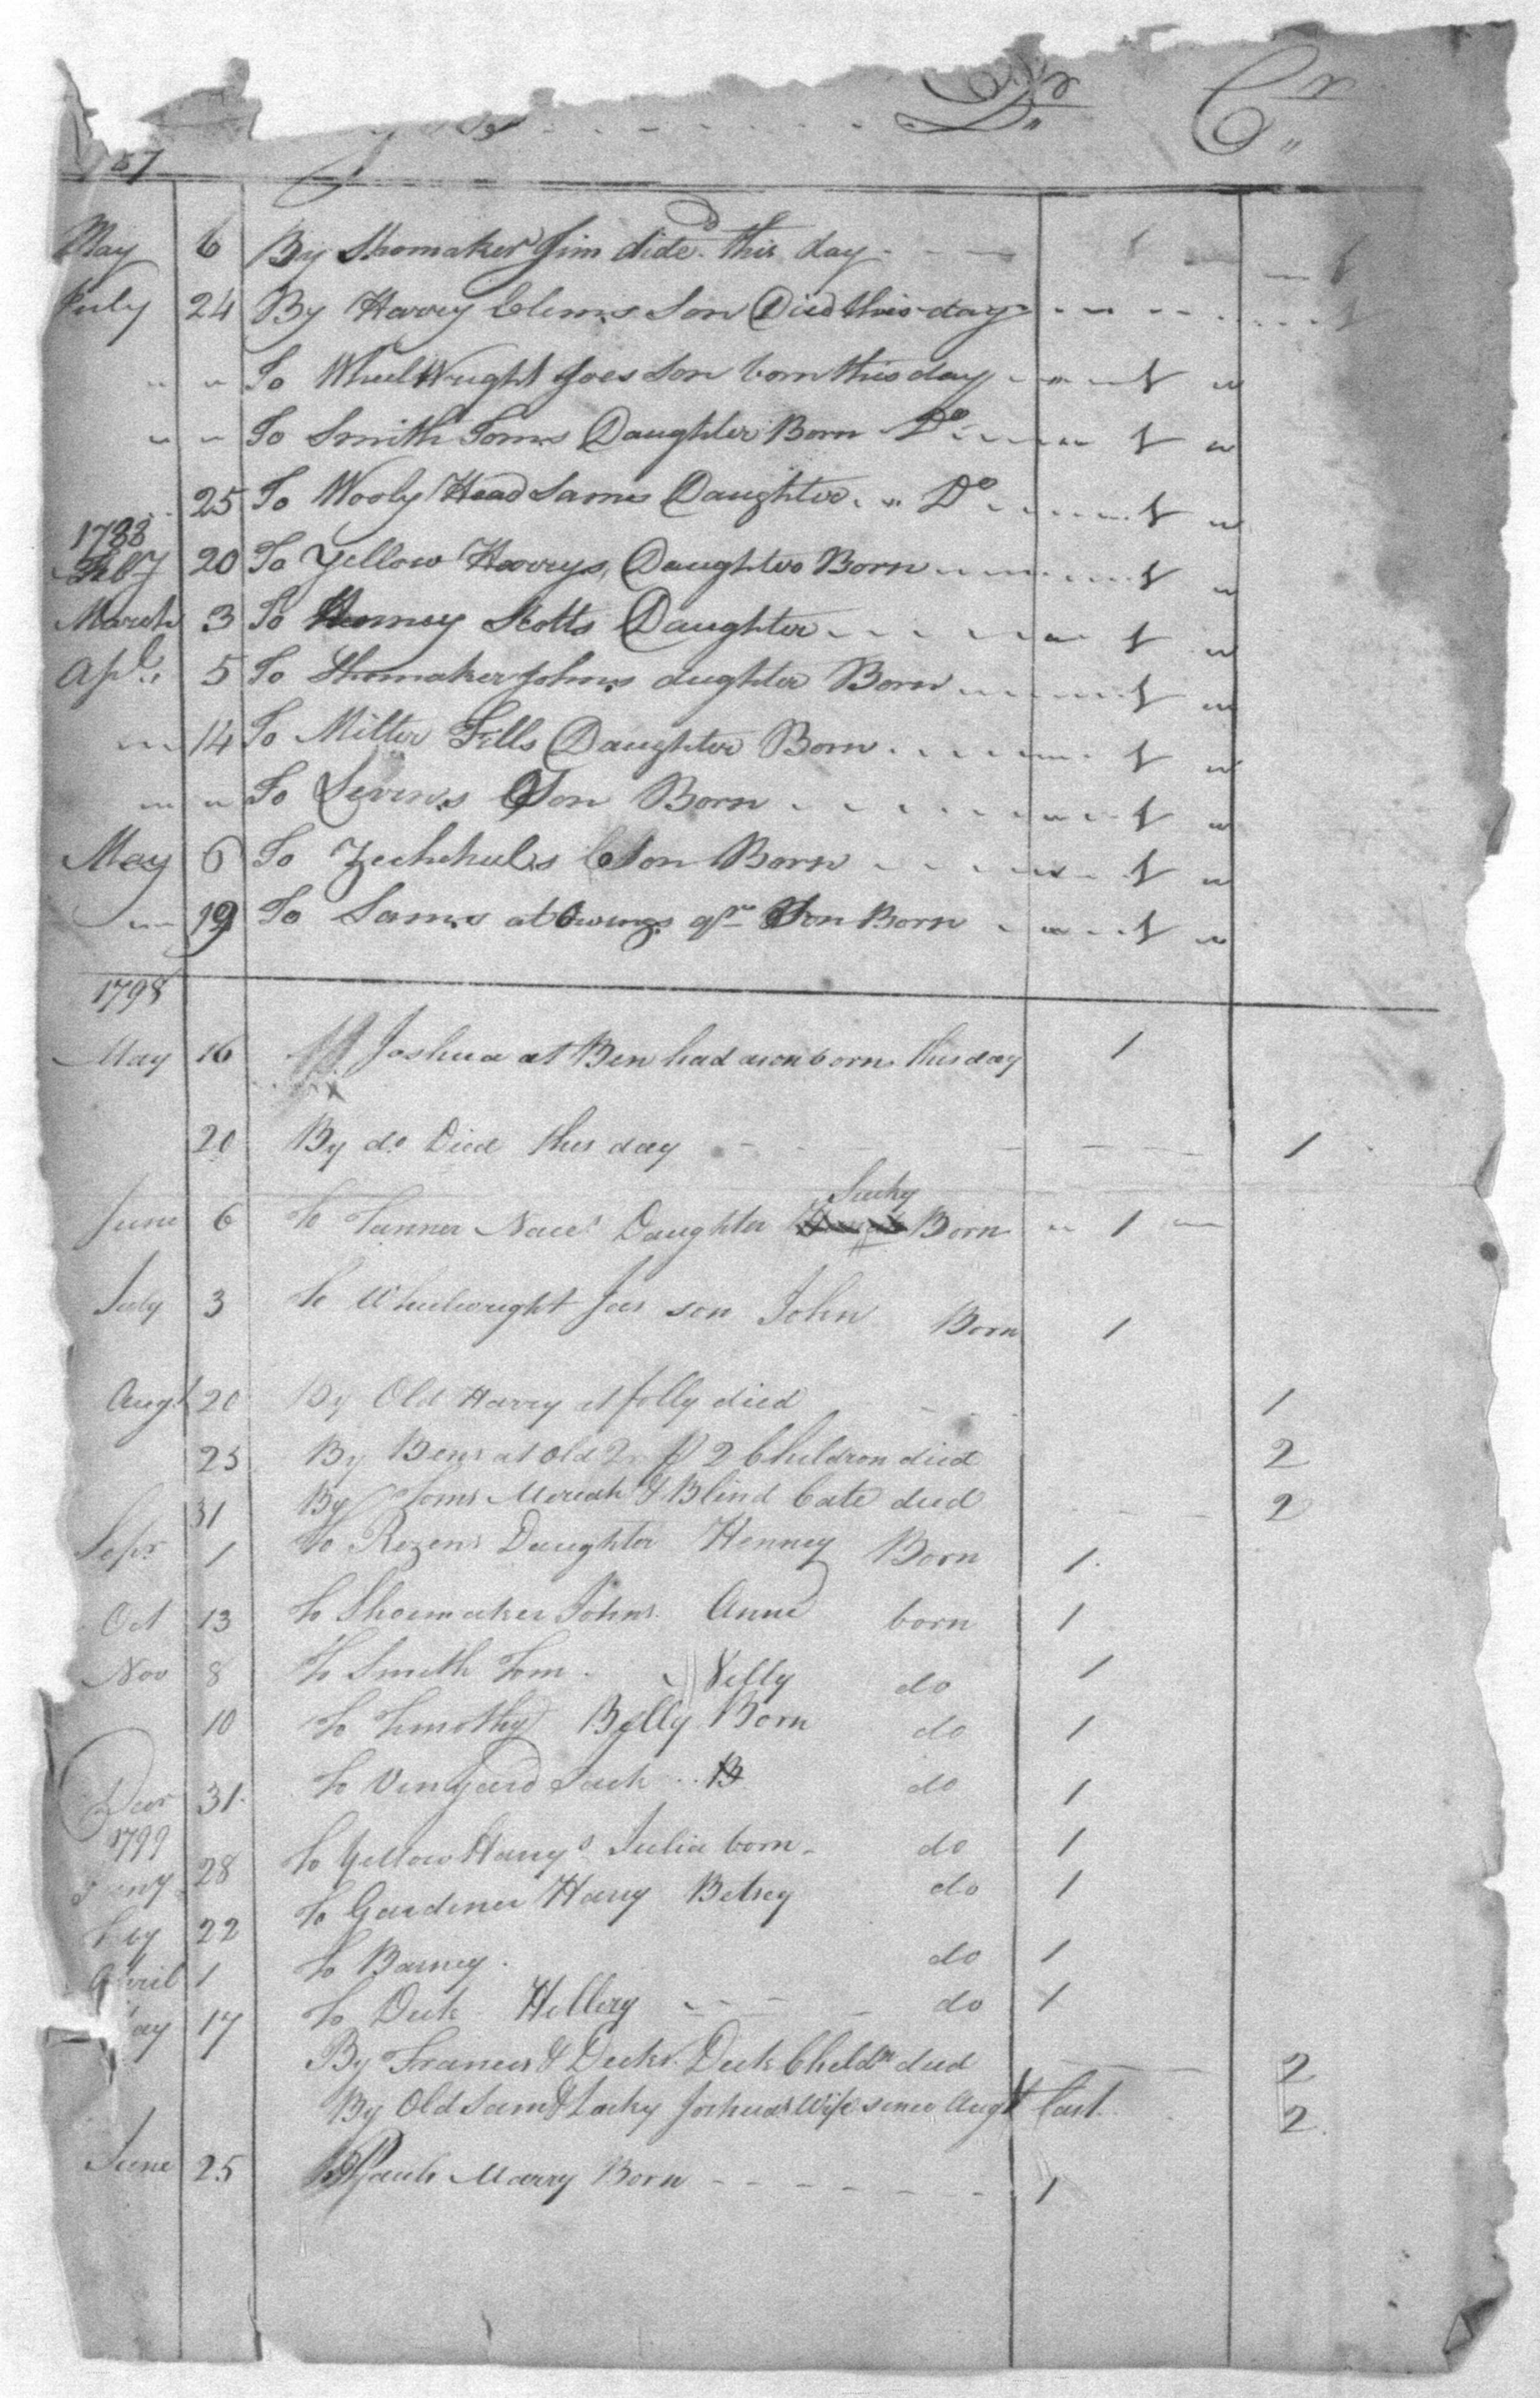 Dr Cr
87
May 6 By Shomaker Jim dide this day 1 1
July 24 By Harry Clem,s Son Died this day 1
" " To Wheel Wright Joes Son born this day 1 "
" " To Smith Toms Daughter Born Do 1 "
25 To Wooly Head Sams Daughter " Do 1 "
1788
Feby 20 To Yellow Harrys, Daughter Born 1 "
March 3 To Henney Scotts Daughter 1 "
Apl. 5 To Shomaker John,s dughter Born 1 "
" 14 To Miller Daughter Born 1 "
" " To Levin,s Son Born 1 "
May 6 To Son Born 1 "
" 19 To Sam,s at Owings Son Born 1 "
1798
May 16 Joshua at Ben had a son born this day 1
20 By do Died this day 1
Sucky
June 6 To Tanner Naces Daughter Born " 1
July 3 To Wheelwright Joes son John Born 1
Augt 20 By Old Harry at folly died 1
25 By Bens at Old 2 Children died 2
31 By Toms Meriah & Blind Cate died 2
Sepr 1 To Rezens Daughter Henney Born 1
Oct 13 To Shoemaker Johns Anne born 1
Nov 8 To Smith Tom Nelly do 1
10 To Timothy Born do 1
Decr 31 To Vinyard Jack B do 1
1799
28 To Yellow Harrys Julia born do 1
22 To Gardener Harry Betsey do 1
April 1 To Barney do 1
ay 17 To Dick Hillery do 1
By Frances & Dicks Dick Childn died 2
By Old Sam & Lucky Joshuas Wife since Augt last 2
June 25 Marry Born 1